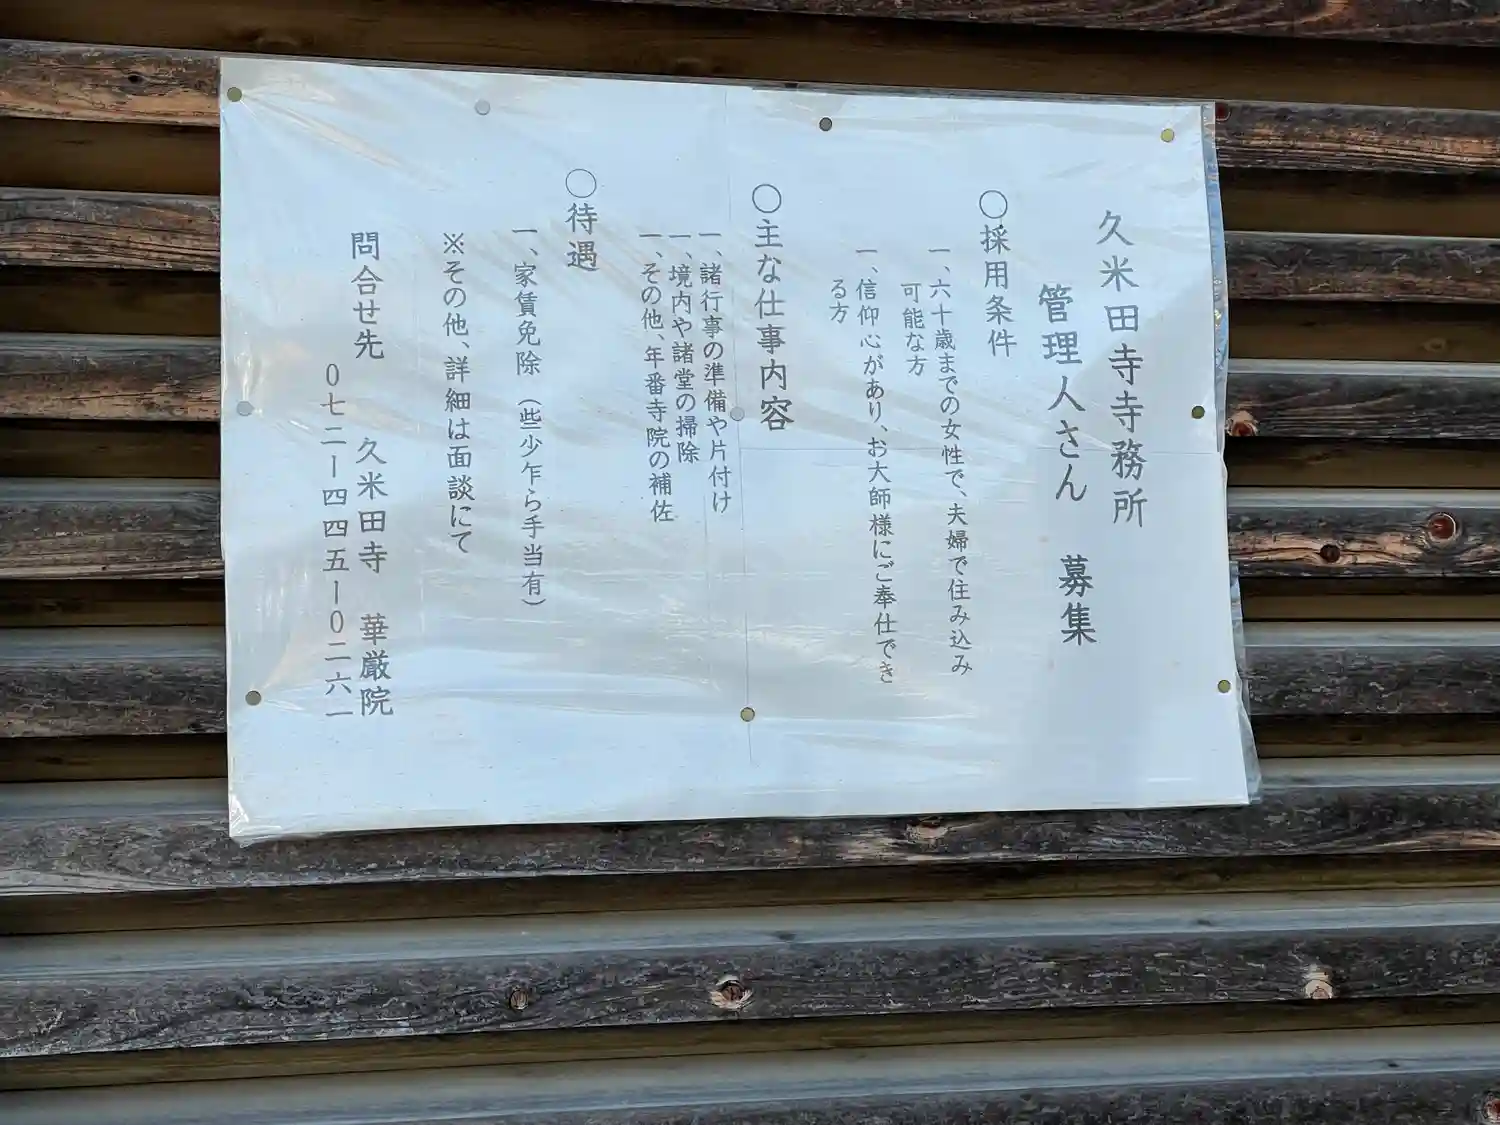 久米田寺寺務所
管理人さん　募集
〇採用条件
一、六十歳までの女性で、夫婦で住み込み
可能な方
一、信仰心があり、お大師様にご奉仕でき
る方
〇主な仕事内容
一、諸行事の準備や片付け
一、境内や諸堂の掃除
一、その他、年番寺院の補佐
〇待遇
一、家賃免除（些少乍ら手当有）
※その他、詳細は面談にて
問合せ先　久米田寺　華厳院
０七二ー四四五ー０二六一